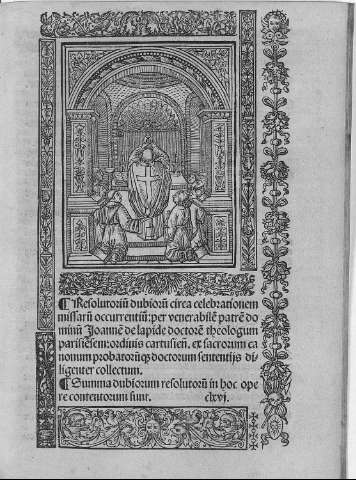 ¶ Resolutoriū dubiorū circa celebrationem
missarū occurrentiū: per venerabilē patrē do
minū Joannē de lapide doctorē theologum
parisiēsem: ordinis cartusiēn. ex sacrorum ca
nonum probatorūqȝ doctorum sententijs di
ligenter collectum.
¶ Summa dubiorum resolutorū in hoc ope
re contentorum sunt. clxvj.